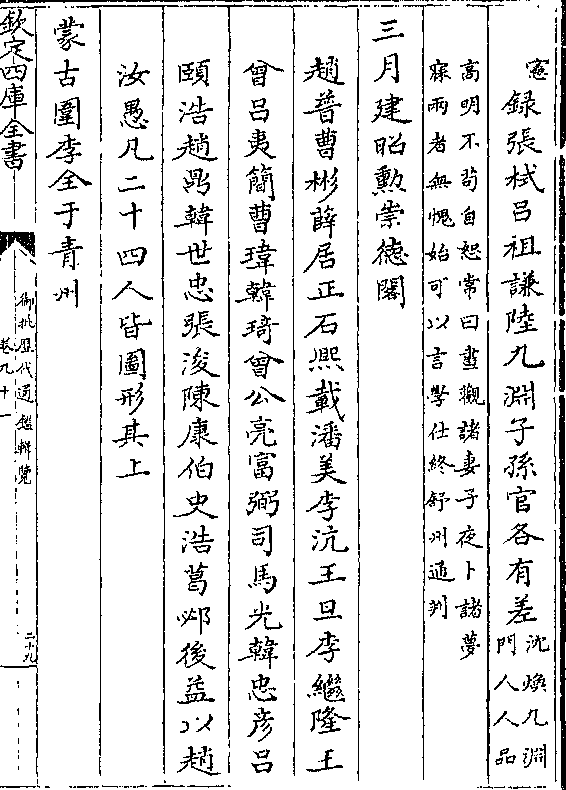 憲
錄張栻呂祖謙陸九淵子孫官各有差沈煥九淵
門人人品
高明不苟自恕常曰晝觀諸妻子夜卜諸夢
寐兩者無愧始可以言學仕終舒州通判
三月建昭勳崇德閣
趙普曹彬薛居正石熙載潘美李沆王旦李繼隆王
曾呂夷簡曹瑋韓琦曾公亮富弼司馬光韓忠彥呂
頤浩趙鼎韓世忠張浚陳康伯史浩葛邲後益以趙
汝愚凡二十四人皆圖形其上
蒙古圍李全于青州
欽定四庫全書
御批歷代通鑑輯覽
卷九十一
二十九